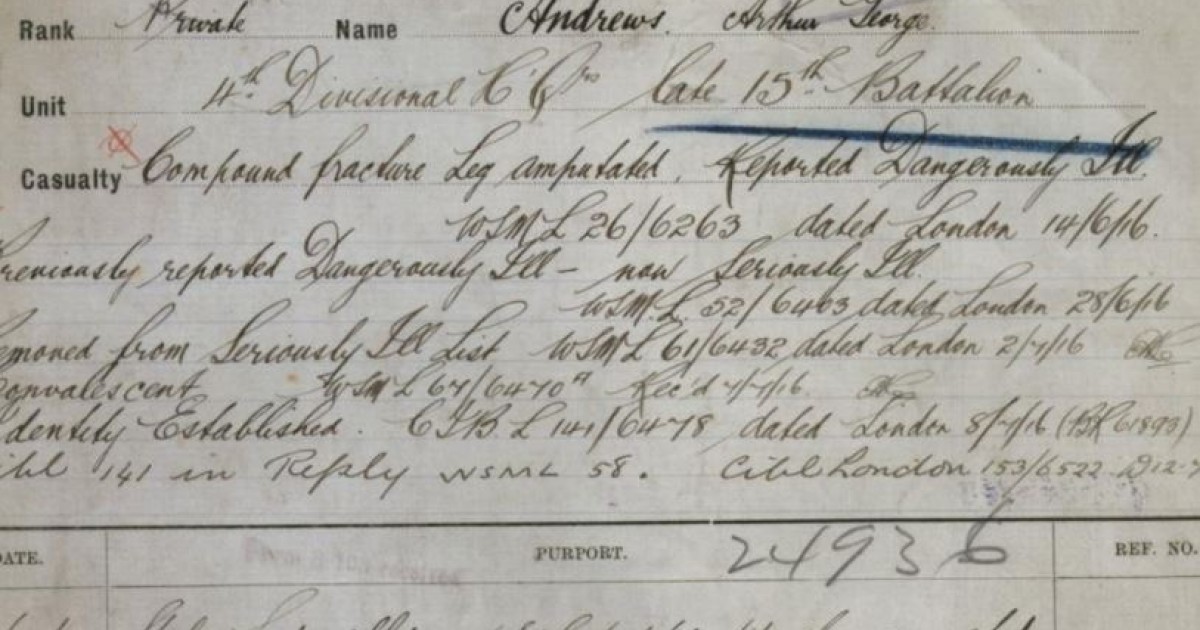 Rank Private Name Andrews. Arthur George.
Unit 4th Divisional H'Qrs late 15th Battalion
Casualty Compound fracture Leg amputated. Reported Dangerously Ill.
WSML 26/6263 dated London 14/6/16.
reviously reported Dangerously Ill - now Seriously Ill.
WSM.L. 52/6403 dated London 28/6/16
emoved from Seriously Ill List WSML 61/6432 dated London 2/7/16
onvalescent WSML 67/6470 Rec'd 7/7/16.
dentity Established. CIB L 141/6478 dated London 8/7/16
141 in Reply WSML 58. London 153/6522
24936
DATE. PURPORT. REF. NO.